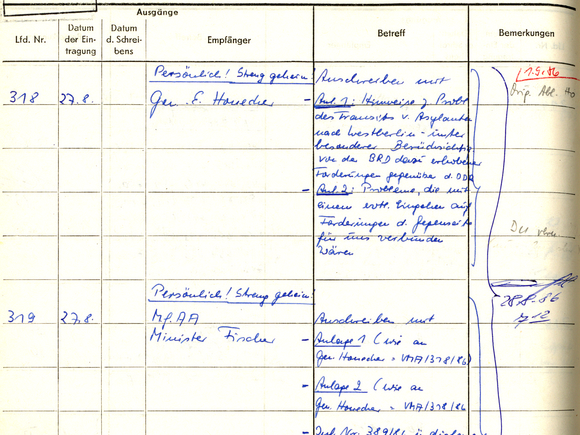 Ausgänge
Lfd. Nr.
Datum
der Ein-
tragung
Datum
d. Schrei-
bens
Empfänger
Betreff
Bemerkungen
Persönlich! Streng geheim!
318
27.8.
Gen. E. Honecker
Anschreiben mit
- Anl. 1: Hinweise z. Probl.
des Transits v. Asylanten
nach Westberlin - unter
besonderer Berücksichtig.
von der BRD dazu erhobener
Forderungen gegenüber d. DDR
- Anl. 2: Probleme, die mit
einem evtl. Eingehen auf
Forderungen d. Gegenseite
für uns verbunden
wären
1.9.86
Orig. Abl.
28.8.86
Persönlich! Streng geheim!
319
27.8.
MfAA
Minister Fischer
Anschreiben mit
- Anlage 1 (wie an
Gen. Honecker = VMA/318/86)
- Anlage 2 (wie an
Gen. Honecker = VMA/318/86